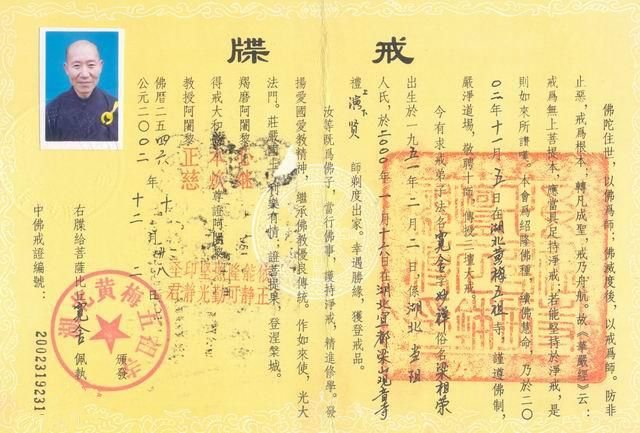 戒牒
佛陀住世，以佛爲師；佛滅度後，以戒爲師。防非
止惡，戒爲根本，轉凡成聖，戒乃舟航。故《華嚴經》云：
戒爲無上菩提本，應當具足持淨戒，若能堅持於淨戒，是
則如來所讚嘆。本會爲紹隆佛種，續佛慧命，乃於二〇
〇二年十一月五日在湖北黃梅五祖寺，謹遵佛制，
嚴淨道場，敬聘十師，傳授三壇大戒。
今有求戒弟子法名寬舍字妙禪俗名梁相榮
出生於一九五一年二月二日係湖北當陽
人氏，於二000年一月十六日在湖北宜都梁山观音寺
禮上演下贤師剃度出家。幸遇勝緣，獲登戒品。
汝等既爲佛子，當行佛事，護持淨戒，精進修學。發
揚愛國愛教精神，繼承佛教優良傳統。作如來使，光大
法門。莊嚴國土，利樂有情，證菩提果，登涅槃城。
得戒大和尚本焕
羯磨阿闍黎
教授阿闍黎正慈
尊證阿闍黎
佛曆二五四六年十月廿八日
公元二00二年十二月二日
右牒給菩薩比丘寬舍佩執
湖北黄梅五祖寺
頒發
中佛戒證編號：2002319231